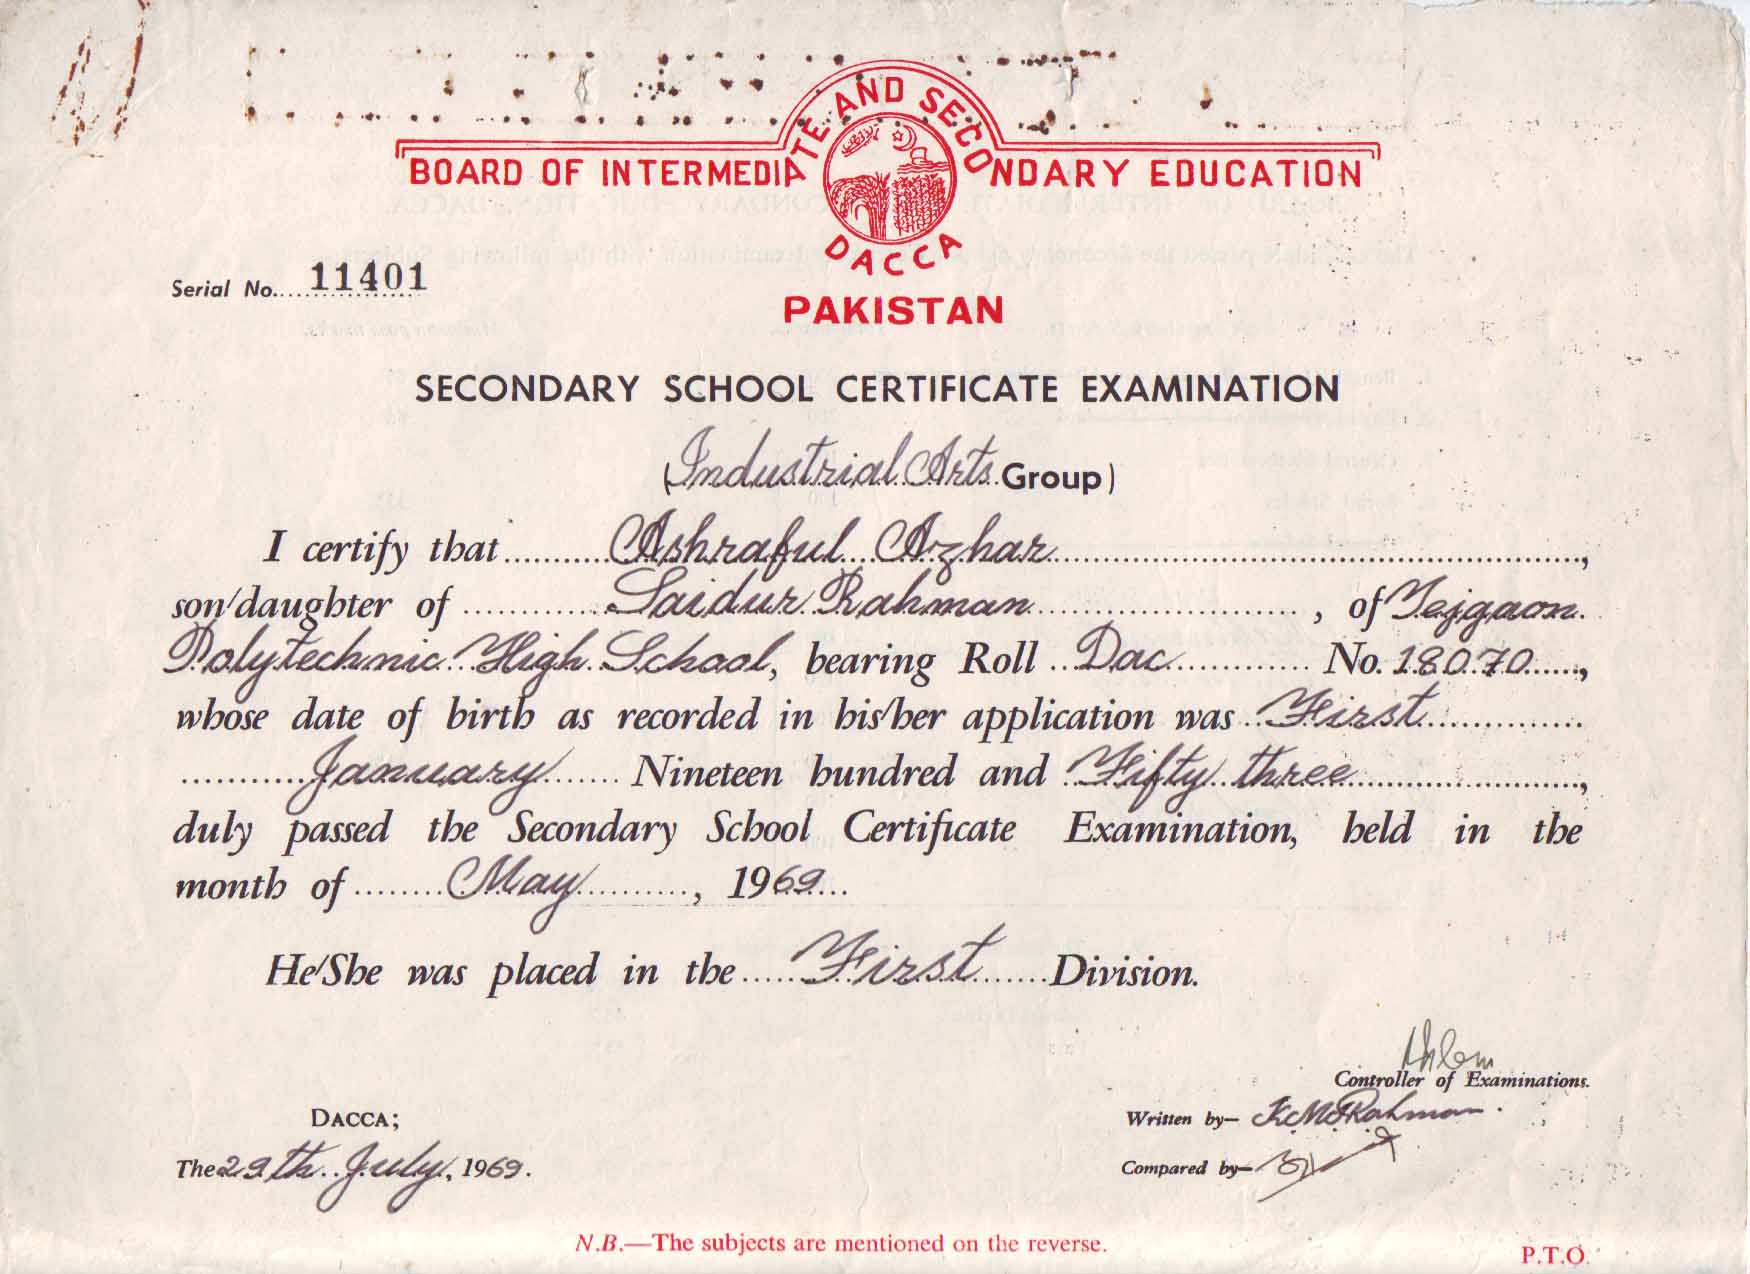 BOARD OF INTERMEDIATE AND SECONDARY EDUCATION
DACCA
PAKISTAN
Serial No. 11401
SECONDARY SCHOOL CERTIFICATE EXAMINATION
(Industrial Arts Group)
I certify that Ashraful Azhar,
son/daughter of Saidur Rahman, of Tejgaon
Polytechnic High School, bearing Roll Dac No. 18070,
whose date of birth as recorded in his/her application was First
January Nineteen hundred and Fifty three,
duly passed the Secondary School Certificate Examination, held in the
month of May, 1969
He/She was placed in the First Division.
Controller of Examinations.
DACCA;
Written by— K M F Rahman.
The 29th July, 1969.
Compared by—
N.B.—The subjects are mentioned on the reverse.
P.T.O.